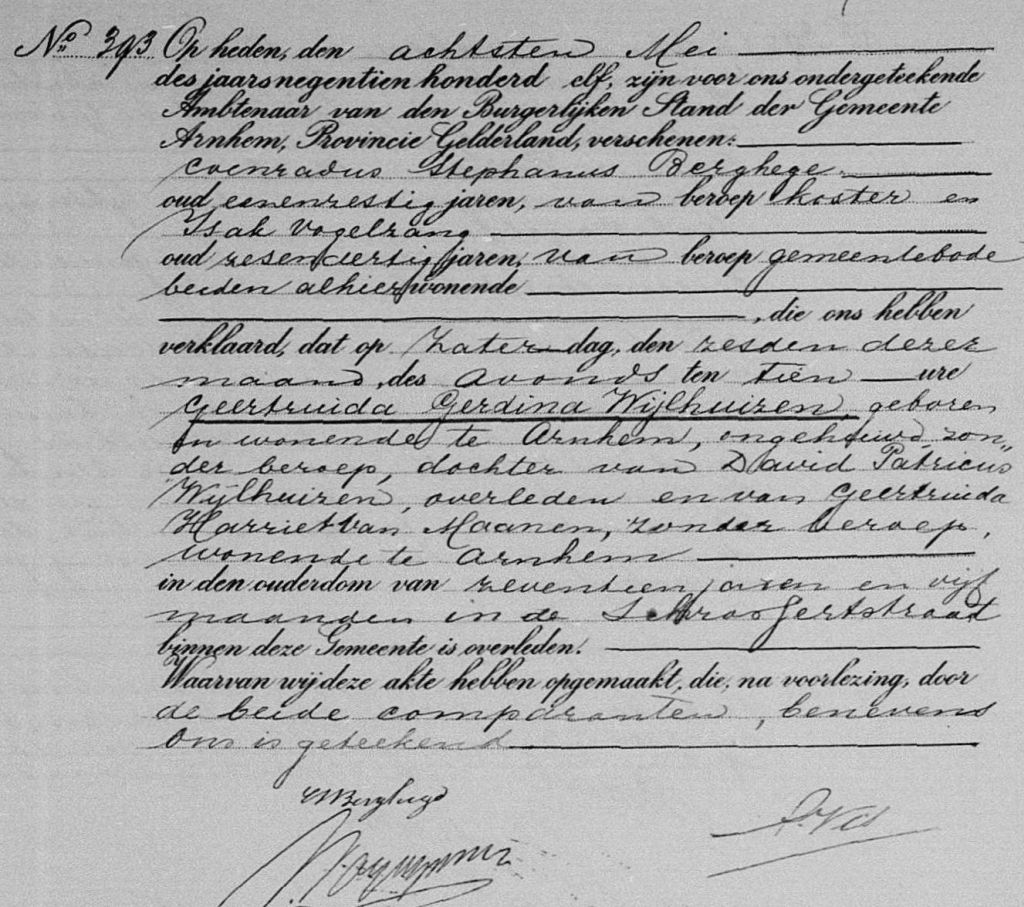 No. 393 Op heden, den achtsten Mei
des jaars negentien honderd elf, zijn voor ons ondergeteekende
Ambtenaar van den Burgerlijken Stand der Gemeente
Arnhem, Provincie Gelderland, verschenen:
Coenradus Stephanus Berghege
oud eenenzestig jaren, van beroep koster en
Isak Vogelzang
oud zesendertig jaren, van beroep gemeentebode
beiden alhier wonende
, die ons hebben
verklaard, dat op Zaterdag, den zesden dezer
maand, des avonds ten tien ure
Geertruida Gerdina Wijlhuizen, geboren
en wonende te Arnhem, ongehuwd, zon„
der beroep, dochter van David Patricus
Wijlhuizen, overleden en van Geertruida
Harriet van Maanen, zonder beroep,
wonende te Arnhem
in den ouderdom van zeventien jaren en vijf
maanden in de
binnen deze Gemeente is overleden.
Waarvan wij deze akte hebben opgemaakt, die, na voorlezing, door
de beide comparanten, benevens
ons is geteekend
Berghege